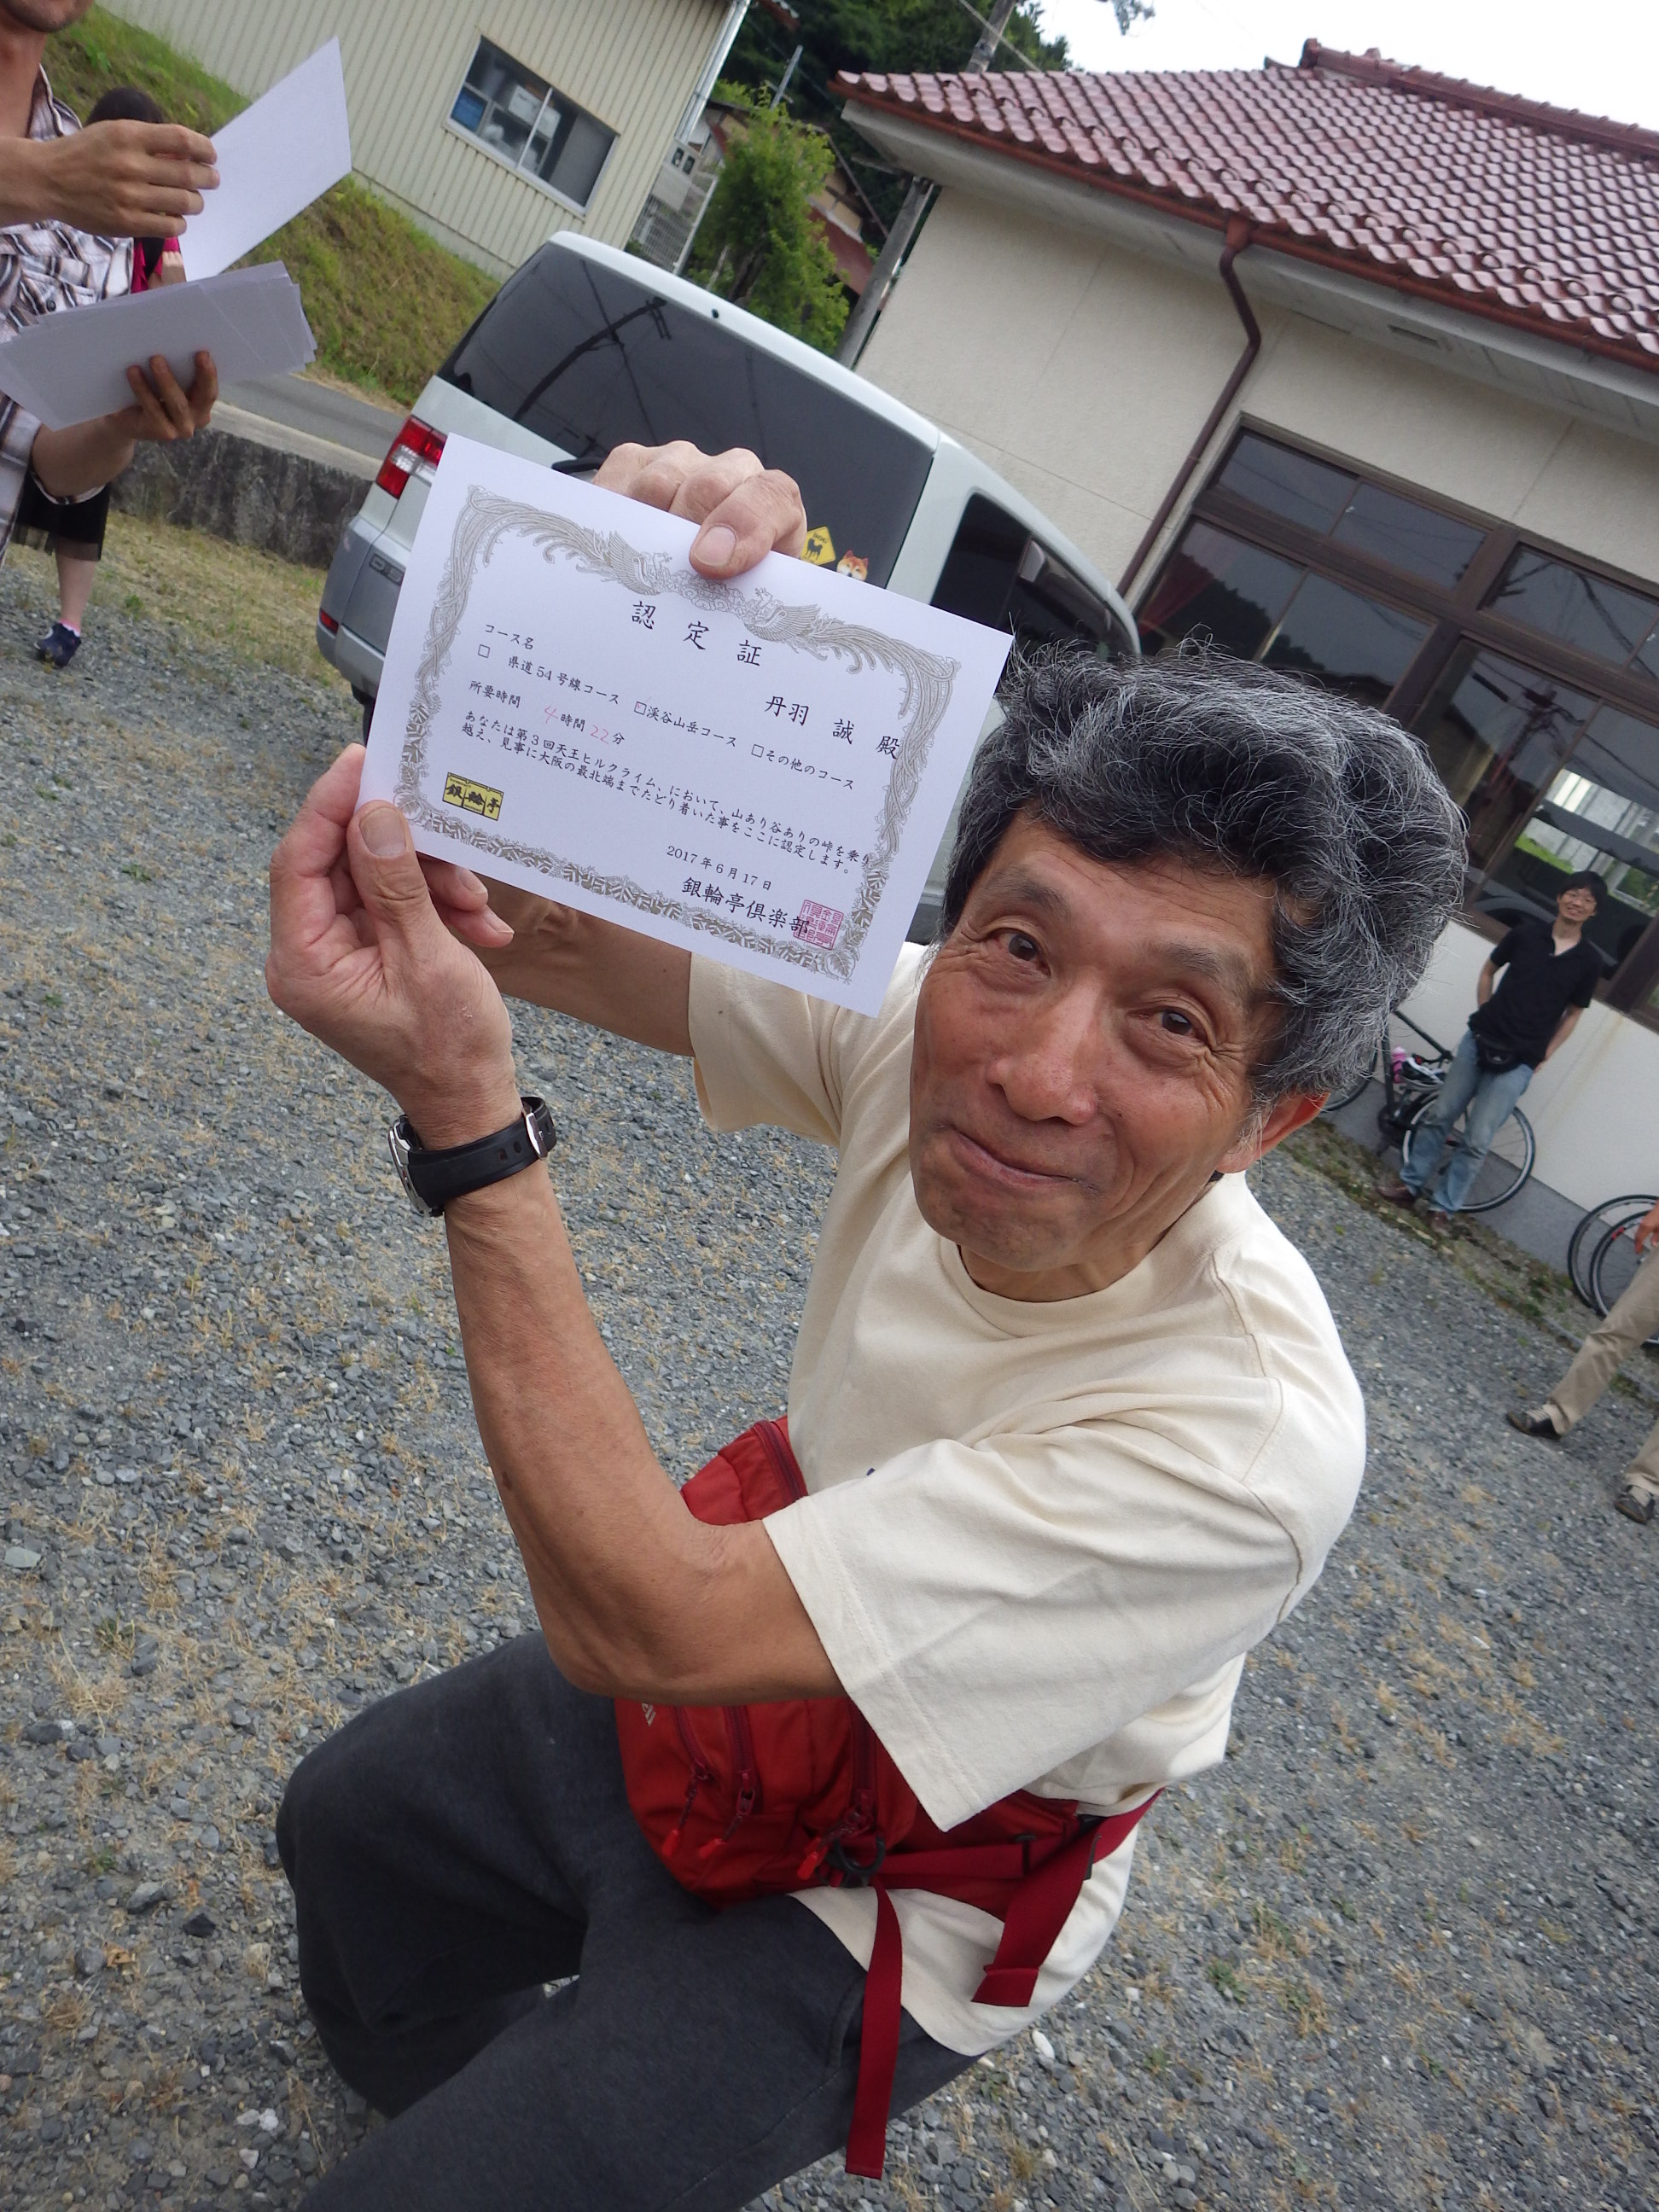 認定証
丹羽 誠 殿
コース名
□ 県道54号線コース □渓谷山岳コース □その他のコース
所要時間 4時間22分
あなたは第3回天王ヒルクライム、において、山あり谷ありの峠を乗り
越え、見事に大阪の最北端までたどり着いた事をここに認定します。
2017年6月17日
銀輪亭倶楽部
銀輪亭